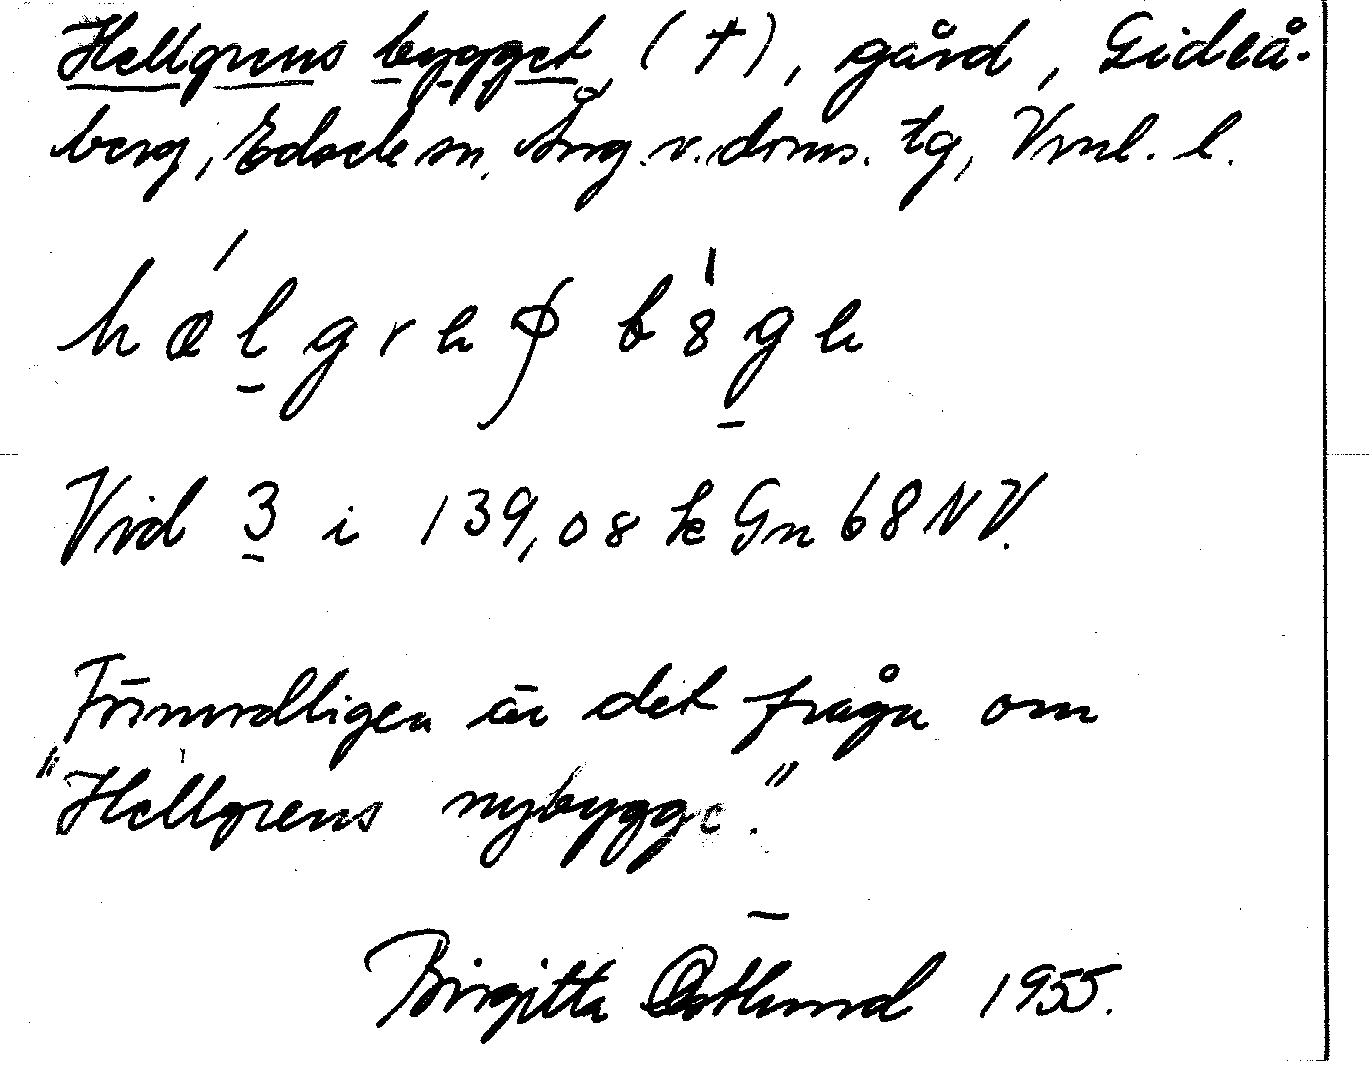 Hellgrens bygget, (†), gård, Gideå-
berg, Edsele sn. Ång. v. doms. tg, Vrnl. l.
Vid 3 i 139,08 k Gn 68 NV.
Förmodligen är det fråga om
"Hellgrens nybygge."
Birgitta Östlund 1955.